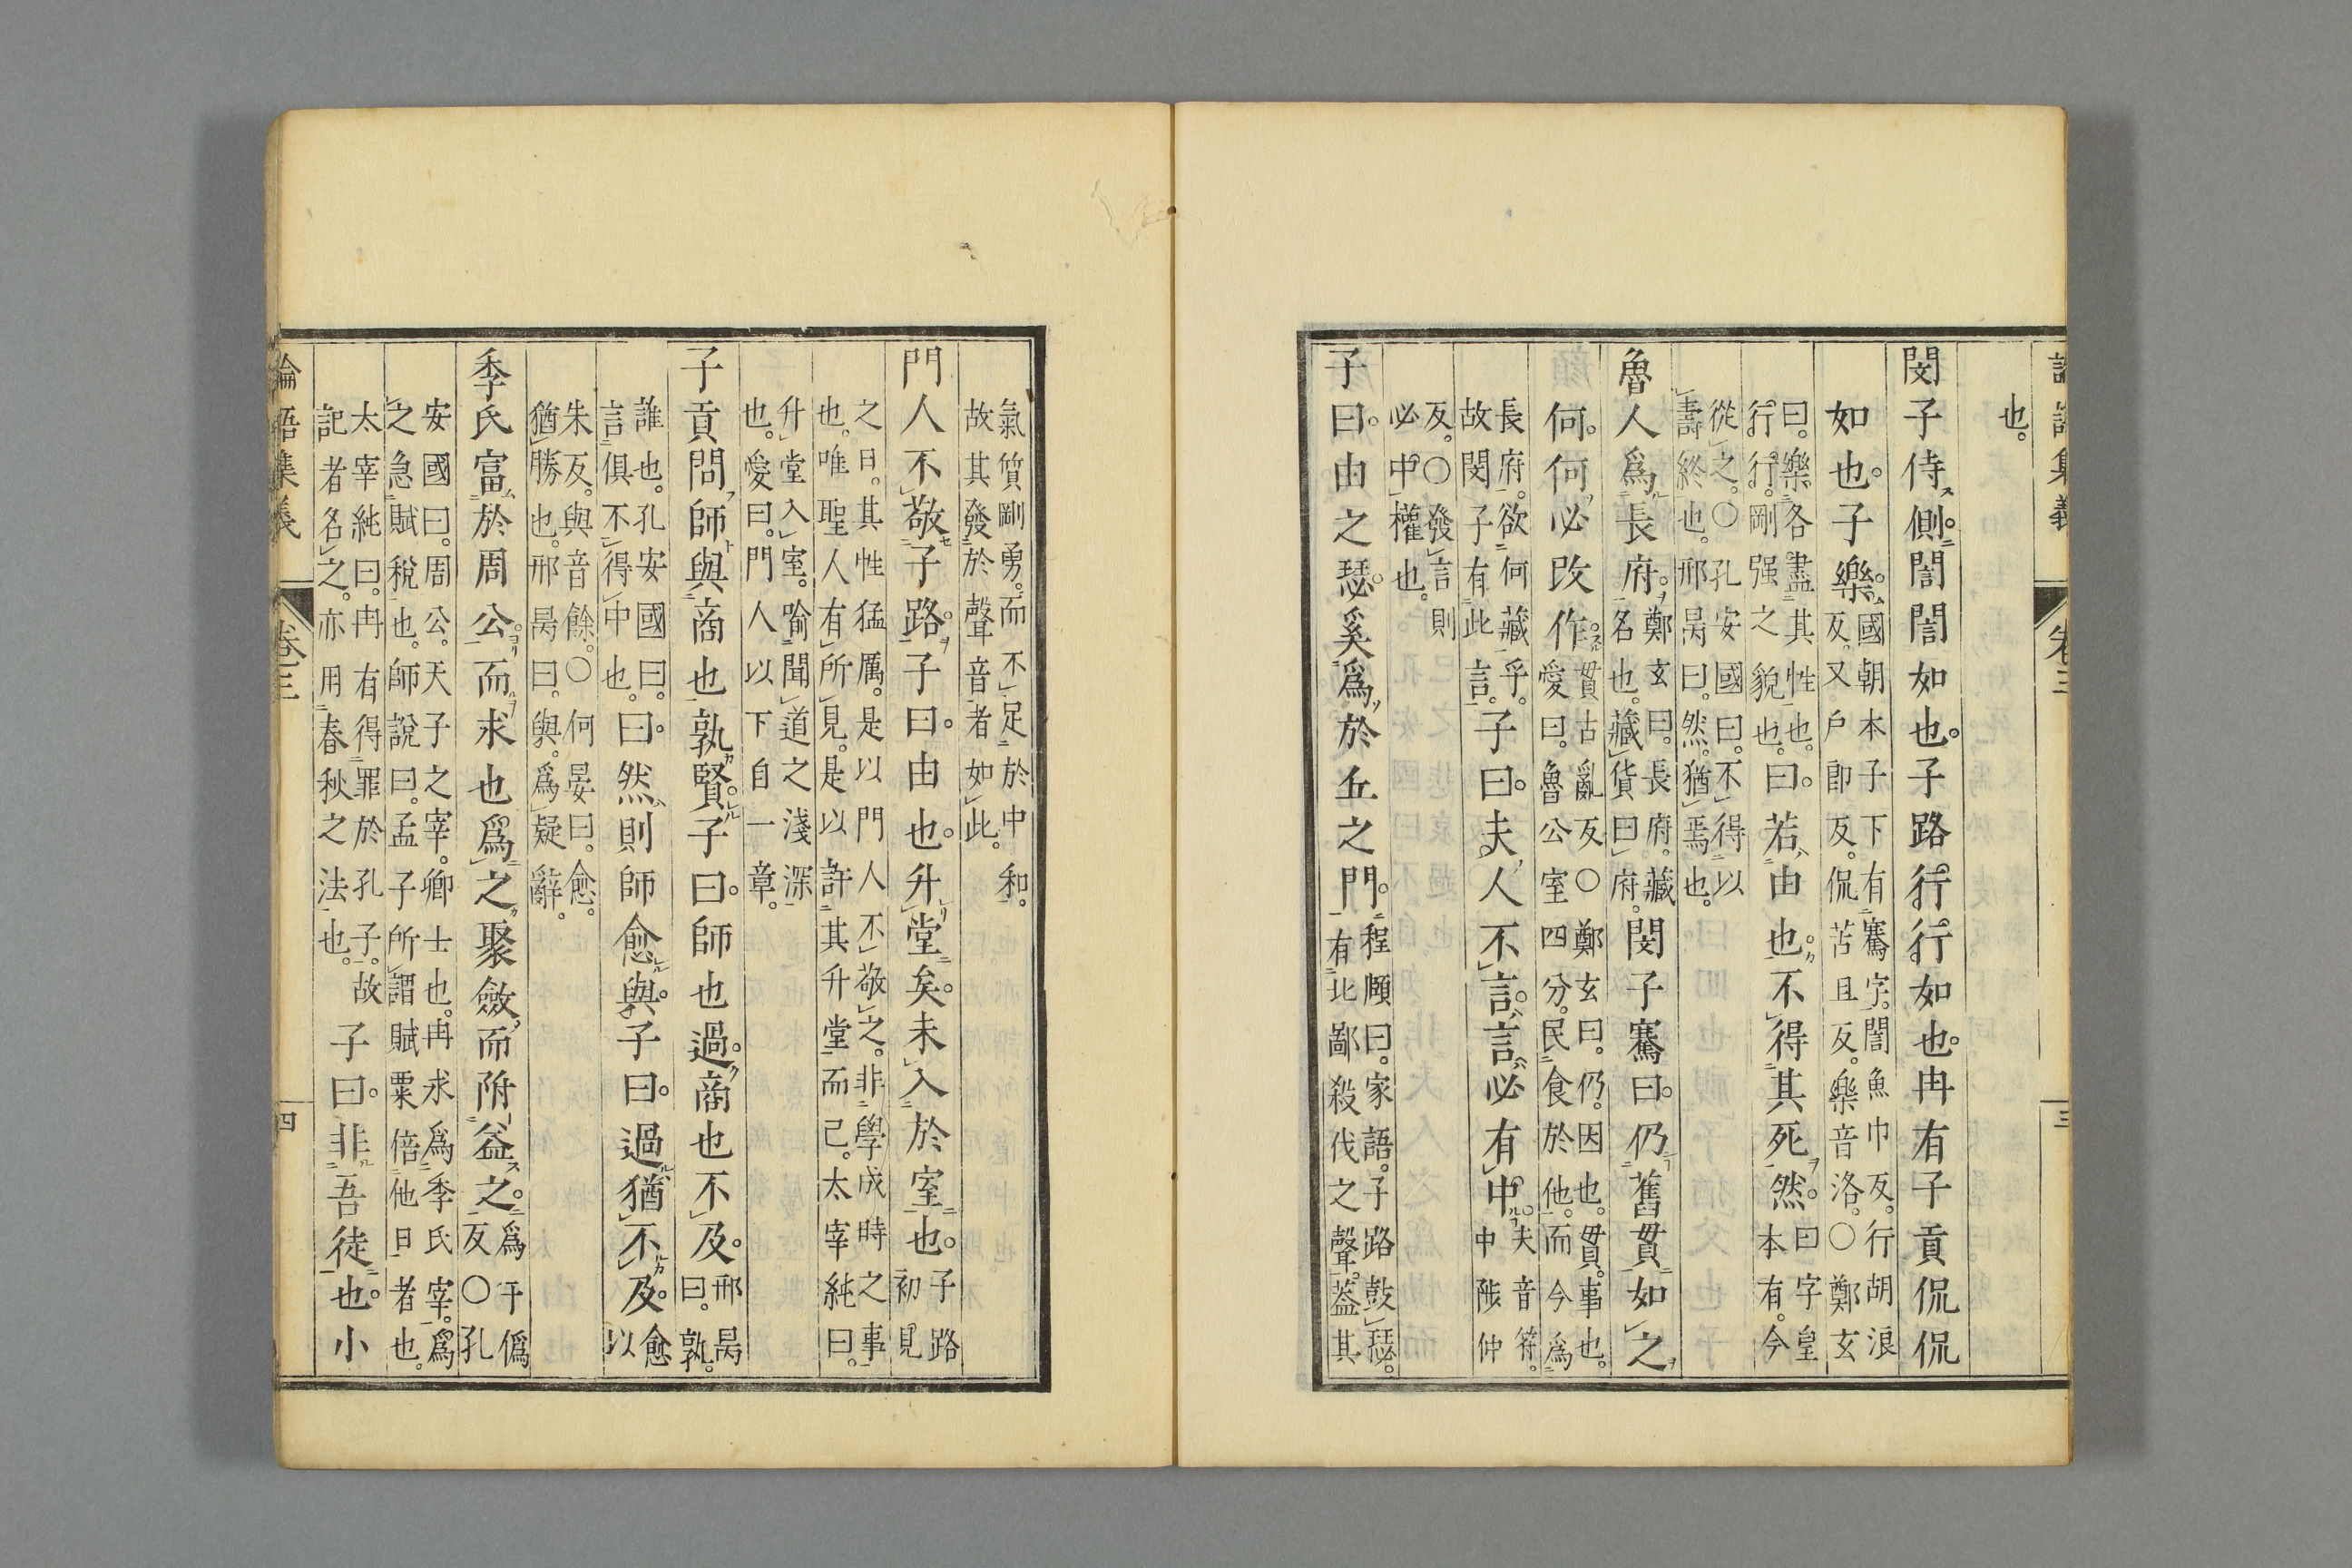 論語集義 卷三 三
也。
閔子侍側。誾誾如也。子路。行行如也。冉有子貢侃侃
如也。子樂。
國朝本子下有騫字。誾魚巾反。行胡浪
反。又戶郎反。侃苦旦反。樂音洛。○鄭玄
曰。樂各盡其性也。
行行。剛强之貌也。
曰。若由也。不得其死然。
曰字皇
本有。今
從之。○孔安國曰。不得以
壽終也。邢昺曰。然。猶焉也。
魯人爲長府。
鄭玄曰。長府。藏
名也。藏貨曰府。
閔子騫曰。仍舊貫如之
何。何必改作。
貫古亂反○鄭玄曰。仍。因也。貫。事也。
愛曰。魯公室四分。民食於他。而今爲
長府。欲何藏乎。
故閔子有此言。
子曰。夫人不言。言必有中。
夫音符。
中陟仲
反。○發言則
必中權也。
子曰。由之瑟。奚爲於丘之門。
程頤曰。家語。子路鼓瑟。
有北鄙殺伐之聲。蓋其
氣質剛勇。而不足於中和。
故其發於聲音者如此。
門人不敬子路。子曰。由也。升堂矣。未入於室也。
子路
初見
之日。其性猛厲。是以門人不敬之。非學成時之事
也。唯聖人有所見。是以許其升堂而已。太宰純曰。
升堂入室。喩聞道之淺深
也。愛曰。門人以下自一章。
子貢問。師與商也孰賢。子曰。師也過。商也不及。
邢昺
曰。孰。
誰也。孔安國曰。
言俱不得中也。
曰。然則師愈與。子曰。過猶不及。
愈
以
朱反。與音餘。○何晏曰。愈。
猶勝也。邢昺曰。與。爲疑辭。
季氏富於周公。而求也爲之聚斂而附益之。
爲于僞
反○孔
安國曰。周公。天子之宰。卿士也。冉求爲季氏宰。爲
之急賦稅也。師說曰。孟子所謂賦粟倍他日者也。
太宰純曰。冉有得罪於孔子。故
記者名之。亦用春秋之法也。
子曰。非吾徒也。小
論語集義 卷三 四